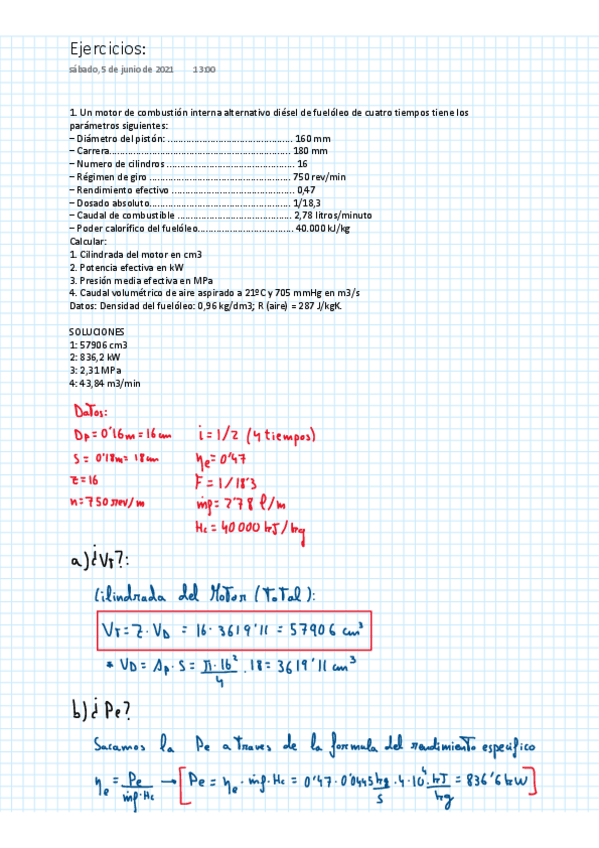 Ejercicios:
sábado, 5 de junio de 2021 13:00
1. Un motor de combustión interna alternativo diésel de fuelóleo de cuatro tiempos tiene los
parámetros siguientes:
– Diámetro del pistón: ............................................... 160 mm
– Carrera.................................................................... 180 mm
– Numero de cilindros ................................................ 16
– Régimen de giro ..................................................... 750 rev/min
– Rendimiento efectivo .............................................. 0,47
– Dosado absoluto..................................................... 1/18,3
– Caudal de combustible ........................................... 2,78 litros/minuto
– Poder calorífico del fuelóleo.................................... 40.000 kJ/kg
Calcular:
1. Cilindrada del motor en cm3
2. Potencia efectiva en kW
3. Presión media efectiva en MPa
4. Caudal volumétrico de aire aspirado a 21ºC y 705 mmHg en m3/s
Datos: Densidad del fuelóleo: 0,96 kg/dm3; R (aire) = 287 J/kgK.
SOLUCIONES
1: 57906 cm3
2: 836,2 kW
3: 2,31 MPa
4: 43,84 m3/min
Datos:
Dp = 0'16m = 16 cm i = 1/2 (4 tiempos)
S = 0'18m = 18 cm ηe = 0'47
Z = 16 F = 1/18'3
n = 750 rev/m ṁf = 2'78 l/m
Hc = 40000 kJ/kg
a) ¿VT?:
Cilindrada del Motor (Total):
VT = Z · VD = 16 · 3619'11 = 57906 cm³
* VD = Ap · S = π·16²/4 · 18 = 3619'11 cm³
b) ¿Pe?
Sacamos la Pe a traves de la formula del rendimiento especifico
ηe = Pe/ṁf·Hc → [Pe = ηe · ṁf · Hc = 0'47 · 0'0445 kg/s · 4·10⁴ kJ/kg = 836'6 kW]